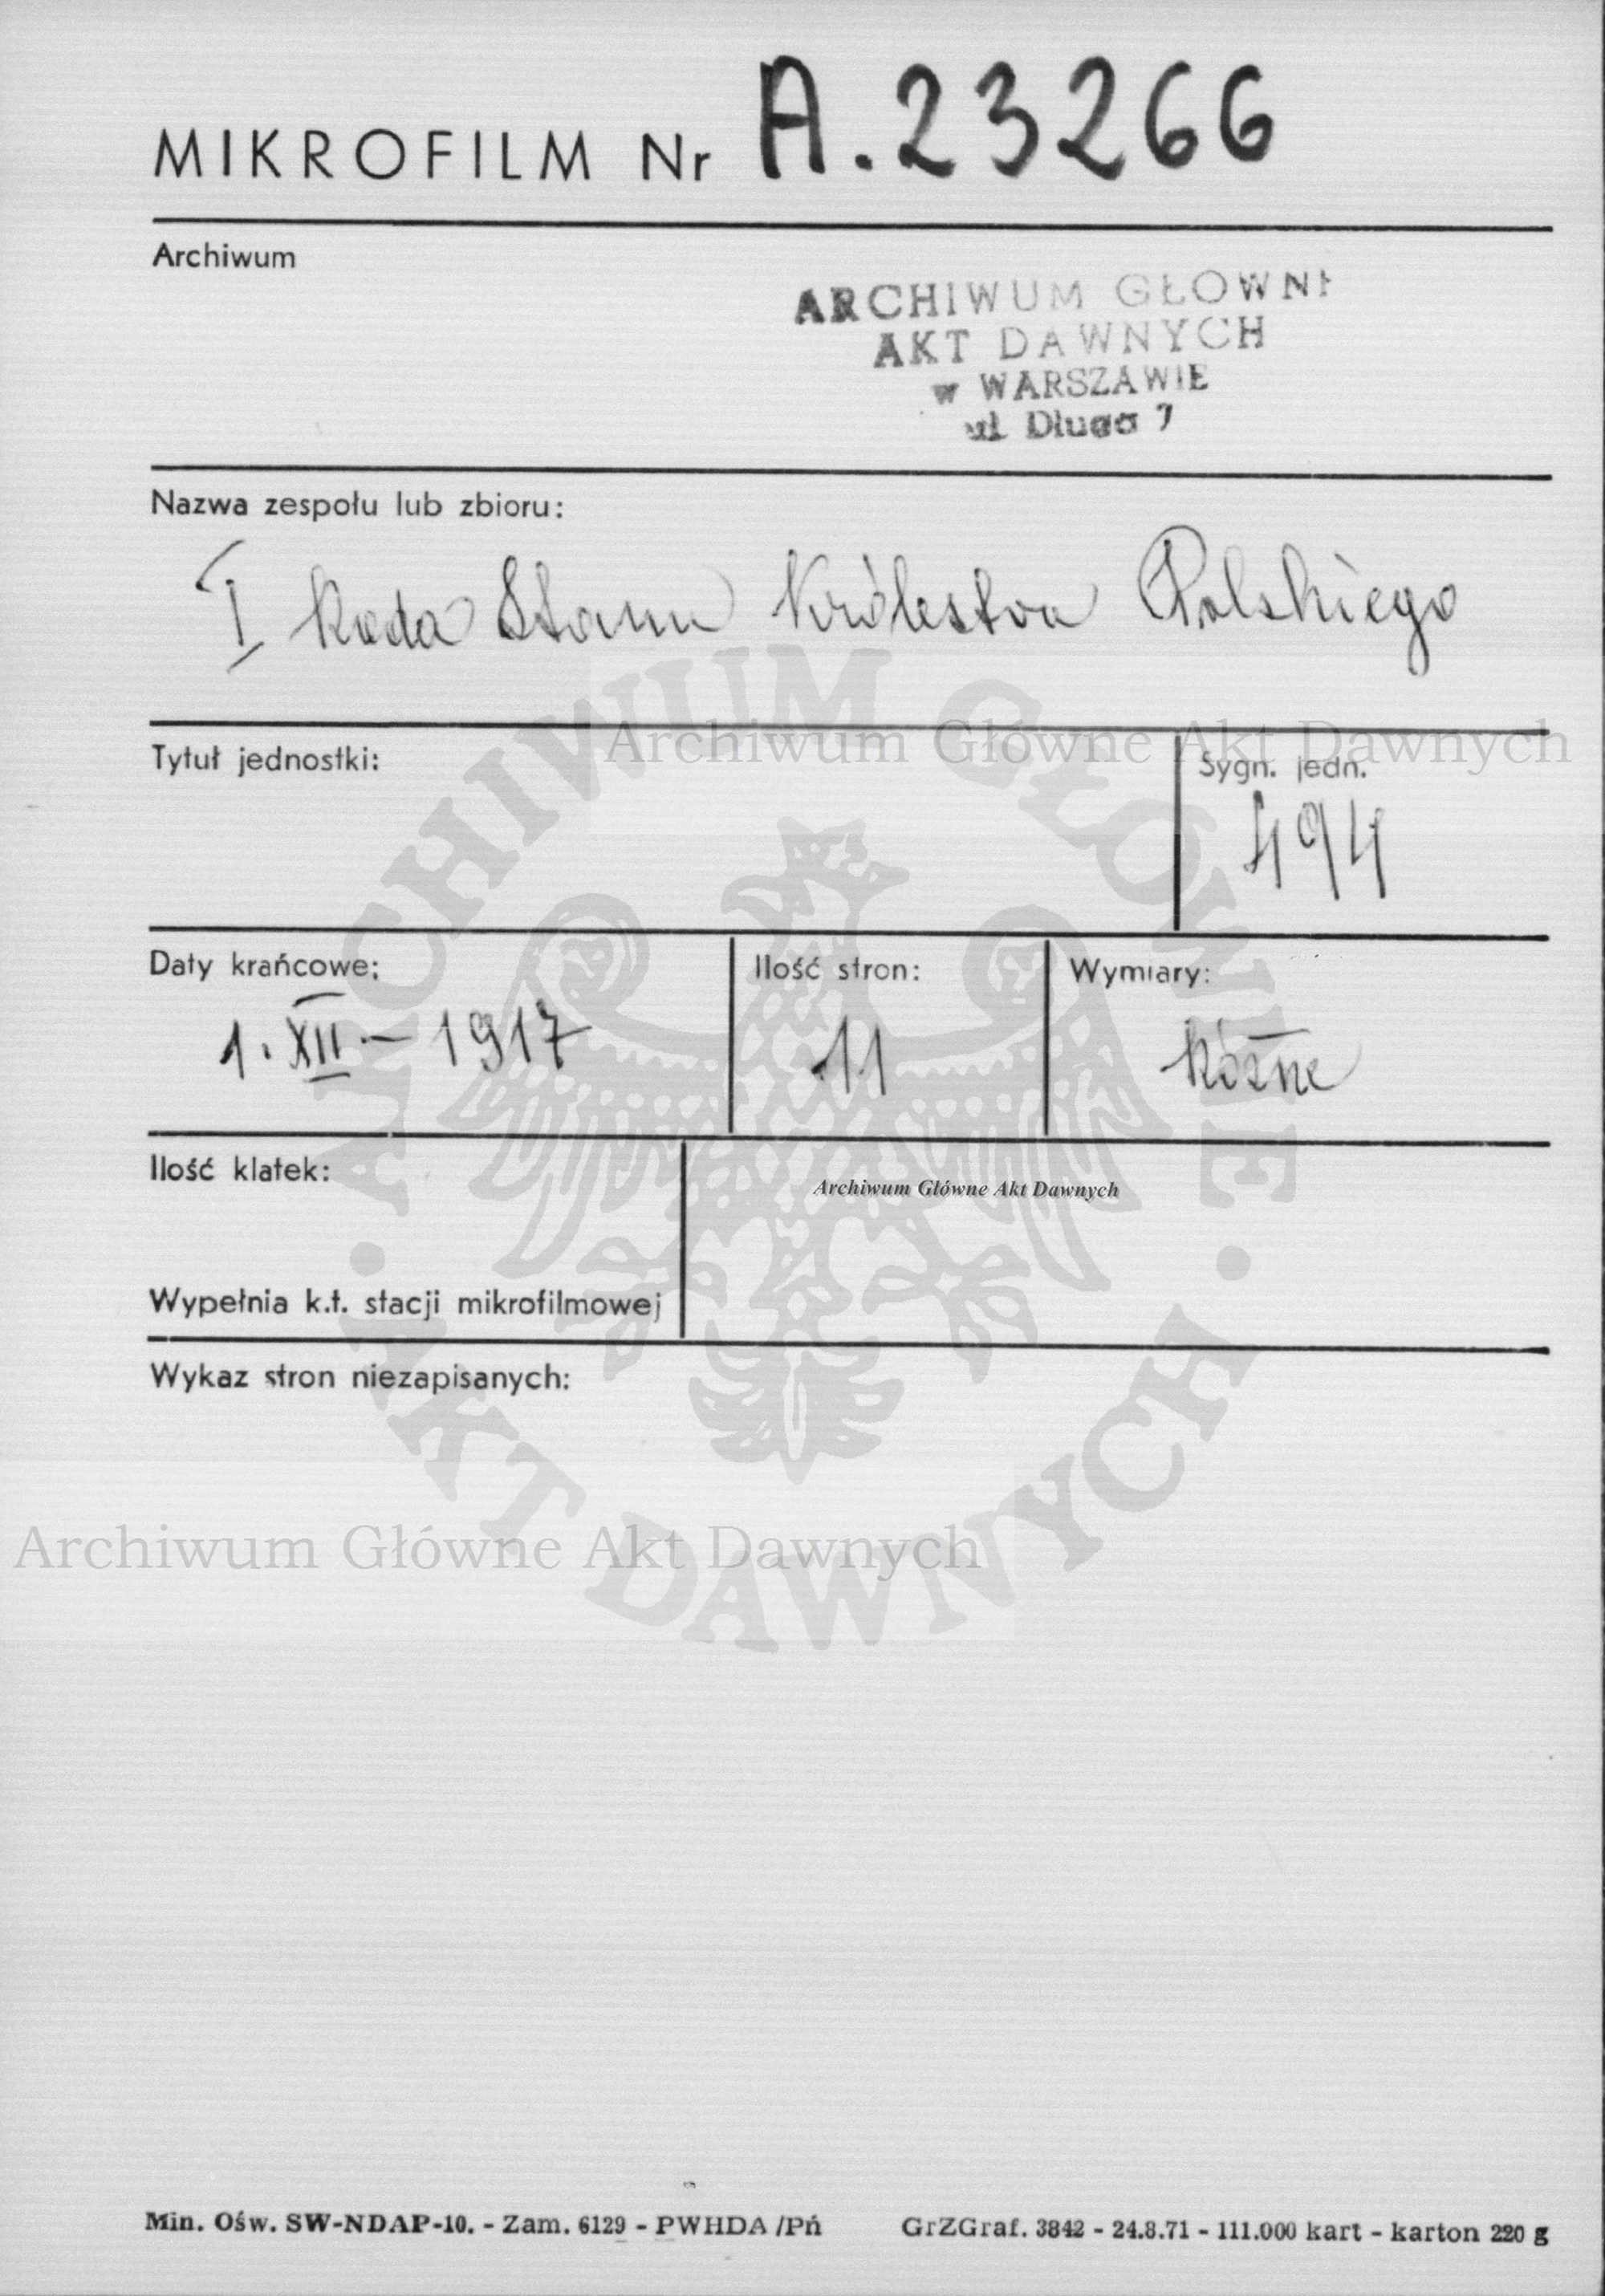 MIKROFILM Nr A.23266
Archiwum
ARCHIWUM GŁOWNE
AKT DAWNYCH
w WARSZAWIE
ul. Długa 7
Nazwa zespołu lub zbioru:
I Rada Stanu Królestwa Polskiego
Archiwum Główne Akt Dawnych
Tytuł jednostki:
Sygn. jedn.
494
Daty krańcowe:
1. XII – 1917
Ilość stron:
11
Wymiary:
Różne
Ilość klatek:
Archiwum Główne Akt Dawnych
Wypełnia k.t. stacji mikrofilmowej
Wykaz stron niezapisanych:
ARCHIWUM GŁÓWNE
AKT DAWNYCH
Archiwum Główne Akt Dawnych
Min. Ośw. SW-NDAP-10. - Zam. 6129 - PWHDA /Pń
GrZGraf. 3842 - 24.8.71 - 111.000 kart - karton 220 g